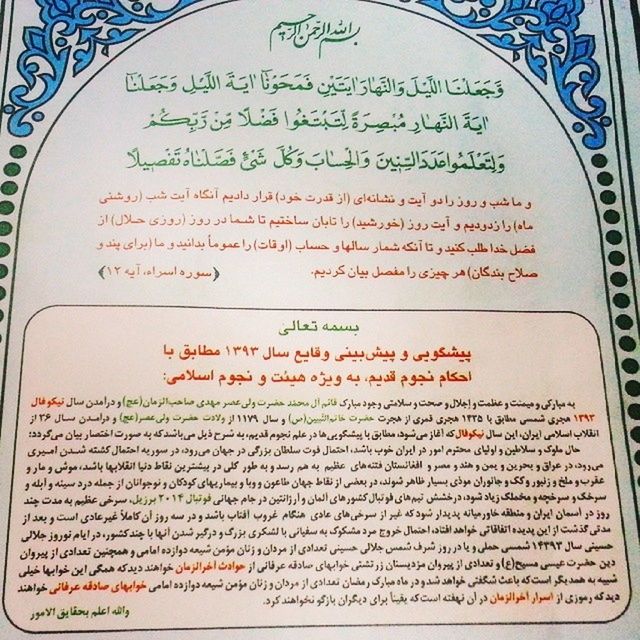 بسم الله الرحمن الرحیم
وَجَعَلْنَا اللَّيْلَ وَالنَّهَارَ ءَايَتَيْنِ فَمَحَوْنَآ ءَايَةَ اللَّيْلِ وَجَعَلْنَآ
ءَايَةَ النَّهَارِ مُبْصِرَةً لِتَبْتَغُوا فَضْلًا مِنْ رَبِّكُمْ
وَلِتَعْلَمُوا عَدَدَ السِّنِينَ وَالْحِسَابَ وَكُلَّ شَيْءٍ فَصَّلْنَاهُ تَفْصِيلًا
و ما شب و روز را دو آیت و نشانه‌ای (از قدرت خود) قرار دادیم آنگاه آیت شب (روشنی
ماه) را زدودیم و آیت روز (خورشید) را تابان ساختیم تا شما در روز (روزی حلال) از
فضل خدا طلب کنید و تا آنکه شمار سالها و حساب (اوقات) را عموماً بدانید و ما (برای پند و
صلاح بندگان) هر چیزی را مفصل بیان کردیم. (سوره اسراء، آیه ۱۲)
بسمه تعالی
پیشگویی و پیش‌بینی وقایع سال ۱۳۹۳ مطابق با
احکام نجوم قدیم، به ویژه هیئت و نجوم اسلامی:
به مبارکی و میمنت و عظمت و إجلال و صحت و سلامتی وجود مبارک قائم آل محمد حضرت ولی‌عصر مهدی صاحب‌الزمان(عج) و درآمدن سال نیکوفال
۱۳۹۳ هجری شمسی مطابق با ۱۴۳۵ هجری قمری از هجرت حضرت خاتم‌النّبیین(ص) و سال ۱۱۷۹ از ولادت حضرت ولی‌عصر(عج) و درآمدن سال ۳۶ از
انقلاب اسلامی ایران، این سال نیکوفال که آغاز می‌شود، مطابق با پیشگویی‌ها در علم نجوم قدیم، به شرح ذیل می‌باشد که به صورت اختصار بیان می‌گردد؛
حال ملوک و سلاطین و اولیای محترم امور در ایران خوب باشد، احتمال فوت سلطان بزرگی در جهان می‌رود، در سوریه احتمال کشته شدن امیری
می‌رود، در عراق و بحرین و یمن و هند و مصر و افغانستان فتنه‌های عظیم به هم رسد و به طور کلی در بیشترین نقاط دنیا انقلابها باشد، موش و مار و
عقرب و ملخ و زنبور و کک و جانوران موذی بسیار ظاهر شوند، در بعضی از نقاط جهان طاعون و وبا و بیماریهای کودکان و نوجوانان از جمله درد سینه و آبله و
سرخک و سرخچه و مخملک زیاد شود، درخشش تیم‌های فوتبال کشورهای آلمان و آرژانتین در جام جهانی فوتبال ۲۰۱۴ برزیل، سرخی عظیم به مدت چند
روز در آسمان ایران و منطقه خاورمیانه پدیدار شود که غیر از سرخی‌های عادی هنگام غروب آفتاب باشد و در سه روز آن کاملاً غیرعادی است و بعد از
مدتی گذشت از این پدیده اتفاقاتی خواهد افتاد، احتمال خروج مرد مشکوک به سفیانی با لشکری بزرگ و درگیر شدن آنها با چند کشور، در ایام نوروز جلالی
حسینی سال ۱۴۳۹۳ شمسی حملی و یا در روز شرف شمس جلالی حسینی تعدادی از مردان و زنان مؤمن شیعه دوازده امامی و همچنین تعدادی از پیروان
دین حضرت عیسی مسیح(ع) و تعدادی از پیروان مزدیسنان زرتشتی خوابهای صادقه عرفانی از حوادث آخرالزمان خواهند دید که همگی این خوابها خیلی
شبیه به همدیگر است که باعث شگفتی خواهد شد و در ماه مبارک رمضان تعدادی از مردان و زنان مؤمن شیعه دوازده امامی خوابهای صادقه عرفانی خواهند
دید که رموزی از اسرار آخرالزمان در آن نهفته است که یقیناً برای دیگران بازگو نخواهند کرد.
والله اعلم بحقایق الامور